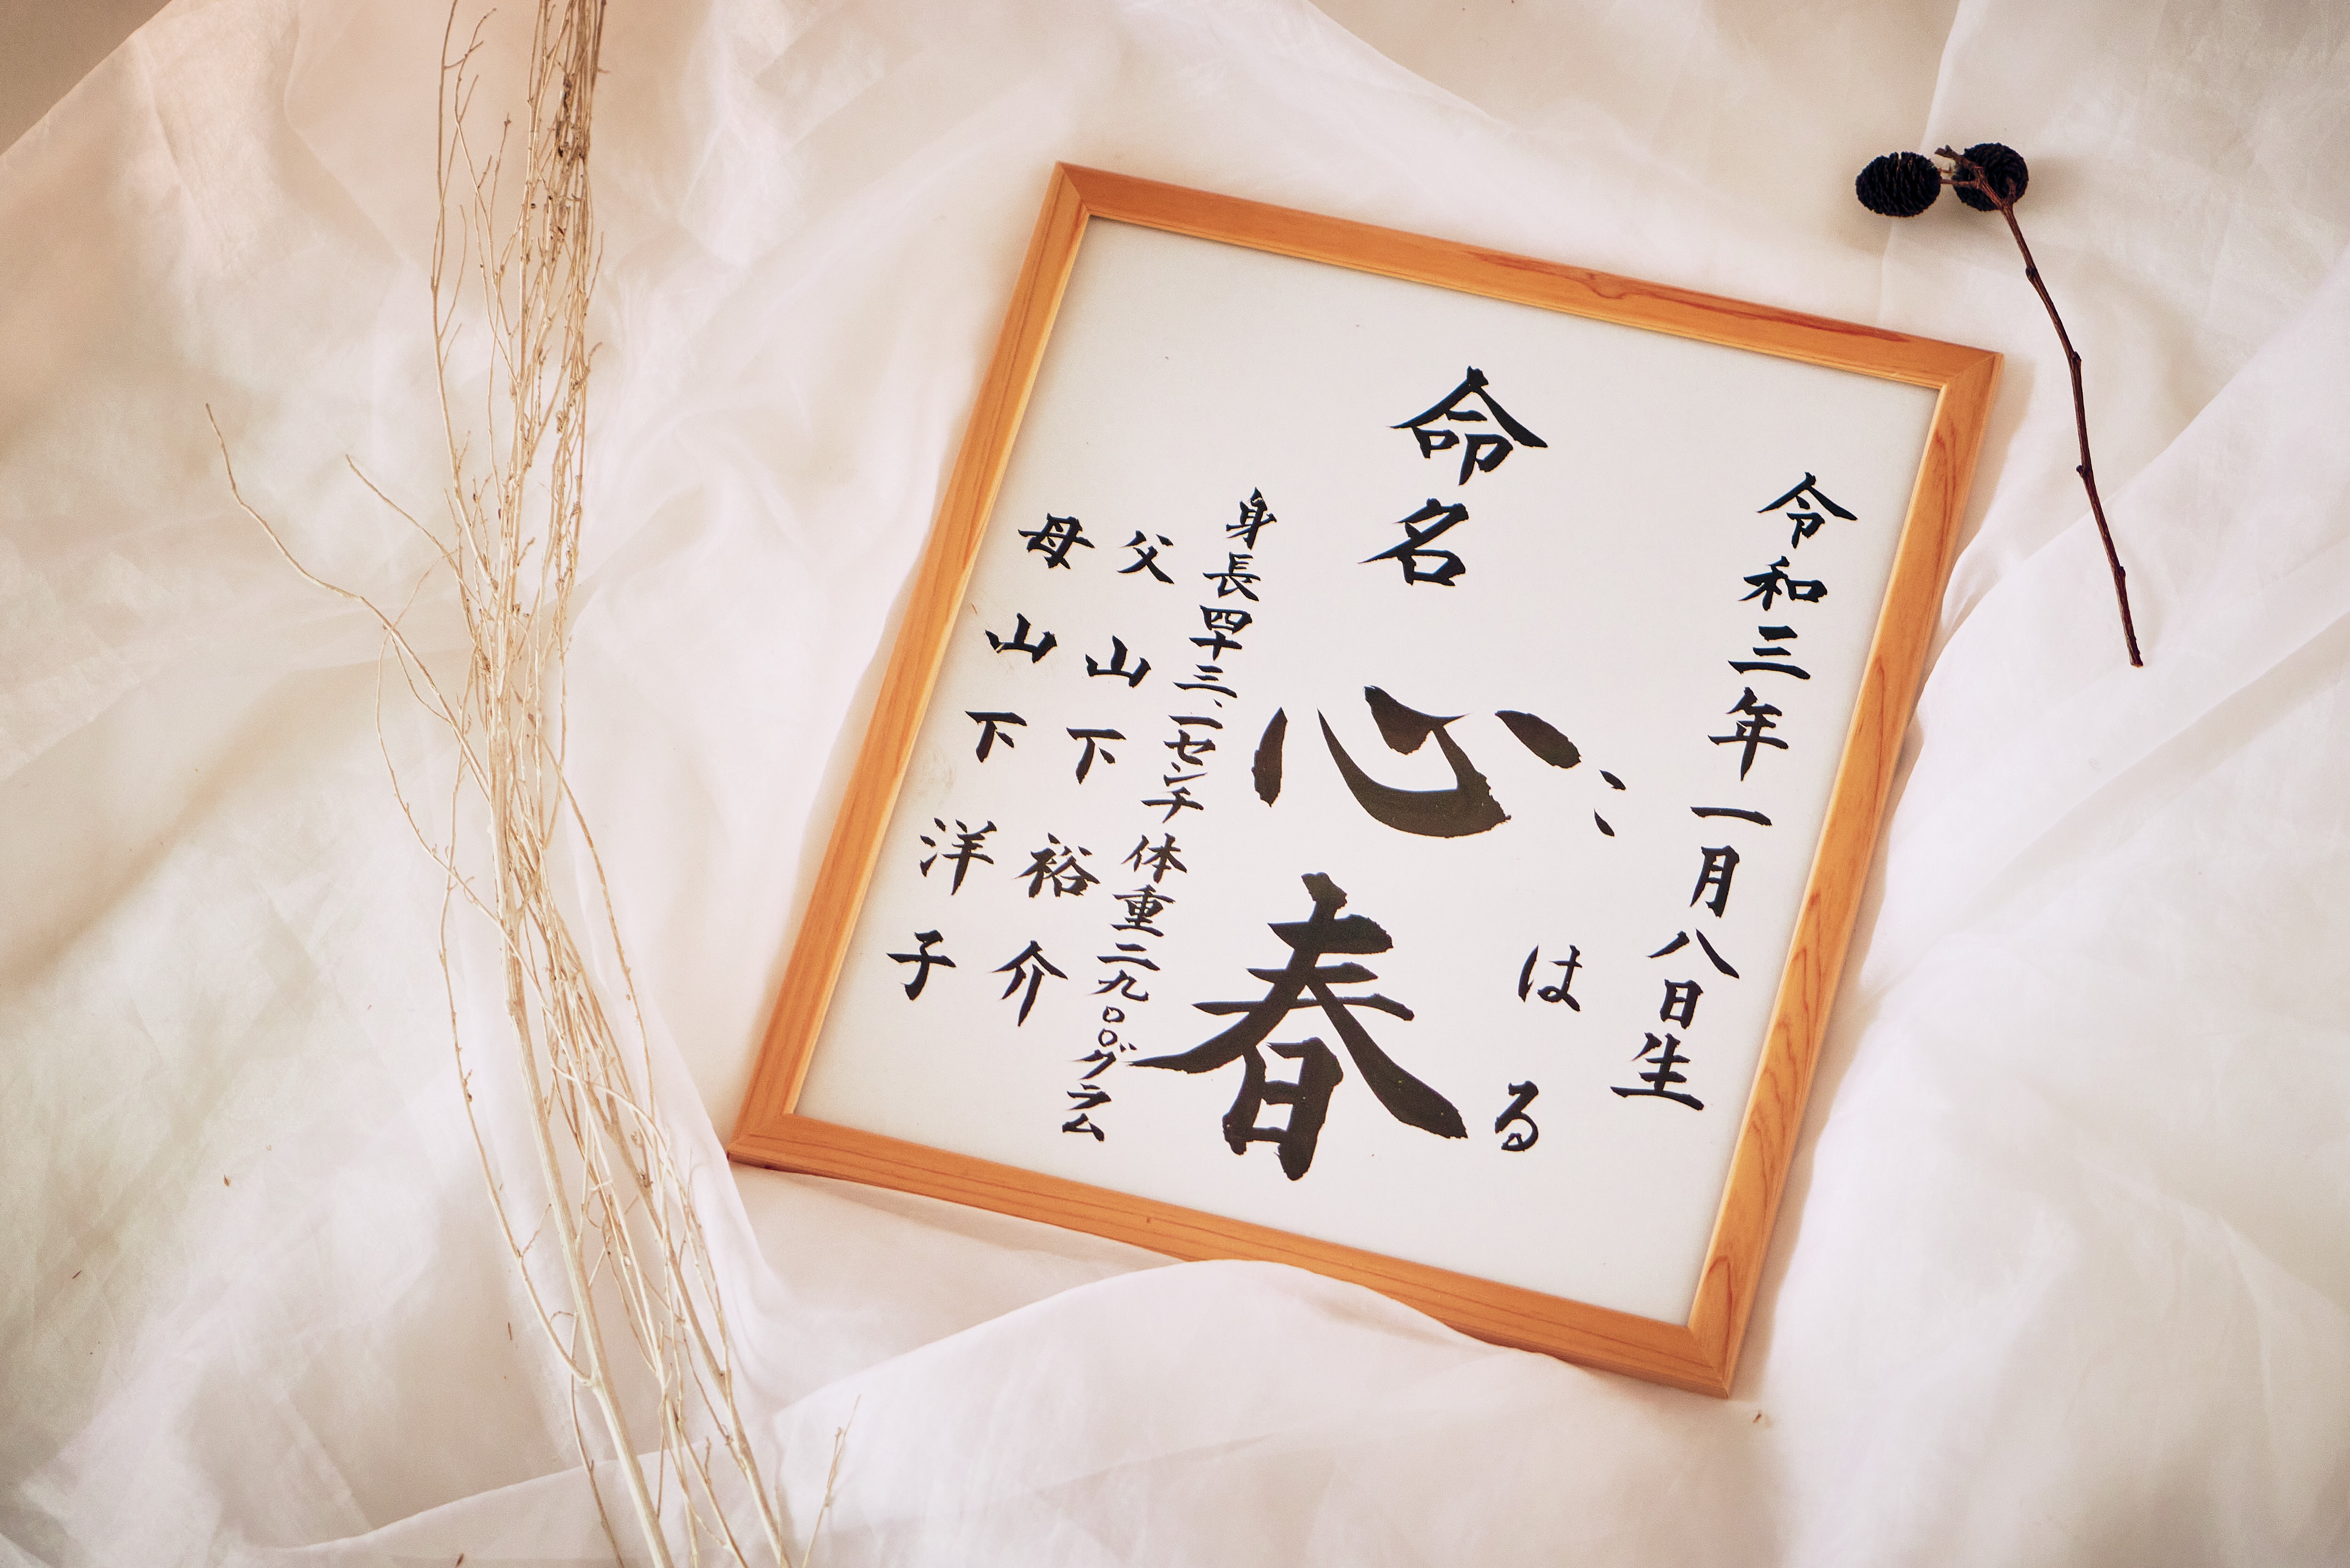 令和三年一月八日生
命名
こはる
心春
身長四十三、一センチ体重二九〇〇グラム
父 山下 裕介
母 山下 洋子